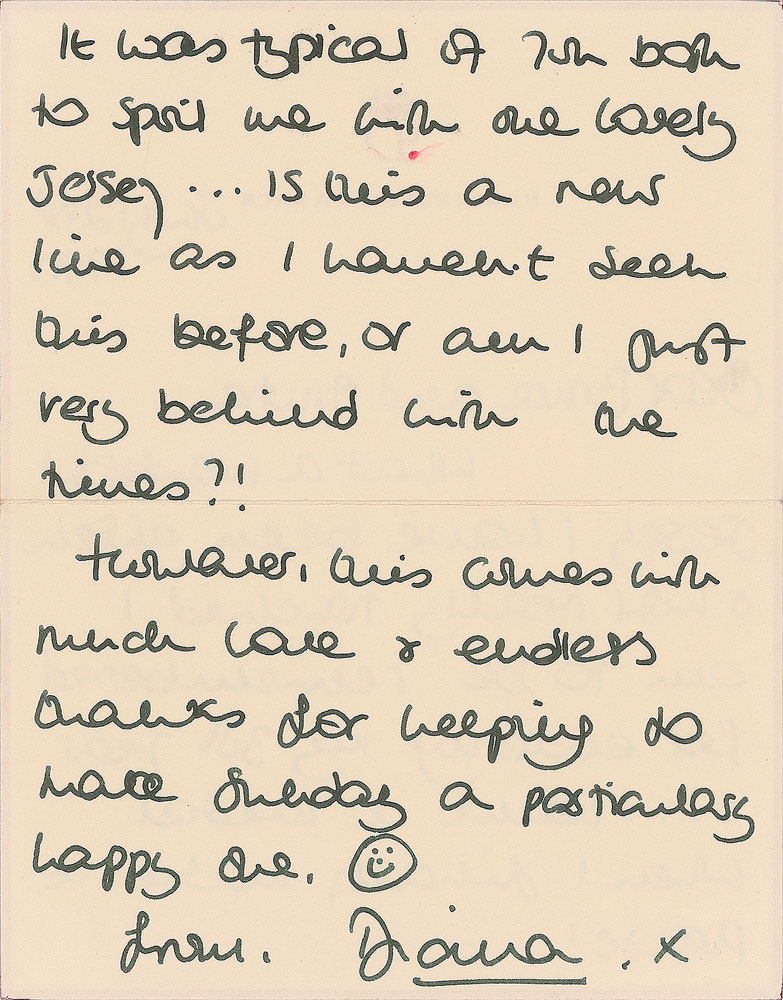 It was typical of you both
to spoil me with the lovely
Jersey ... Is this a new
line as I haven't seen
this before, or am I just
very behind with the
times?!
However, this comes with
much love & endless
thanks for helping to
make Sunday a particularly
happy one.
from. Diana . x